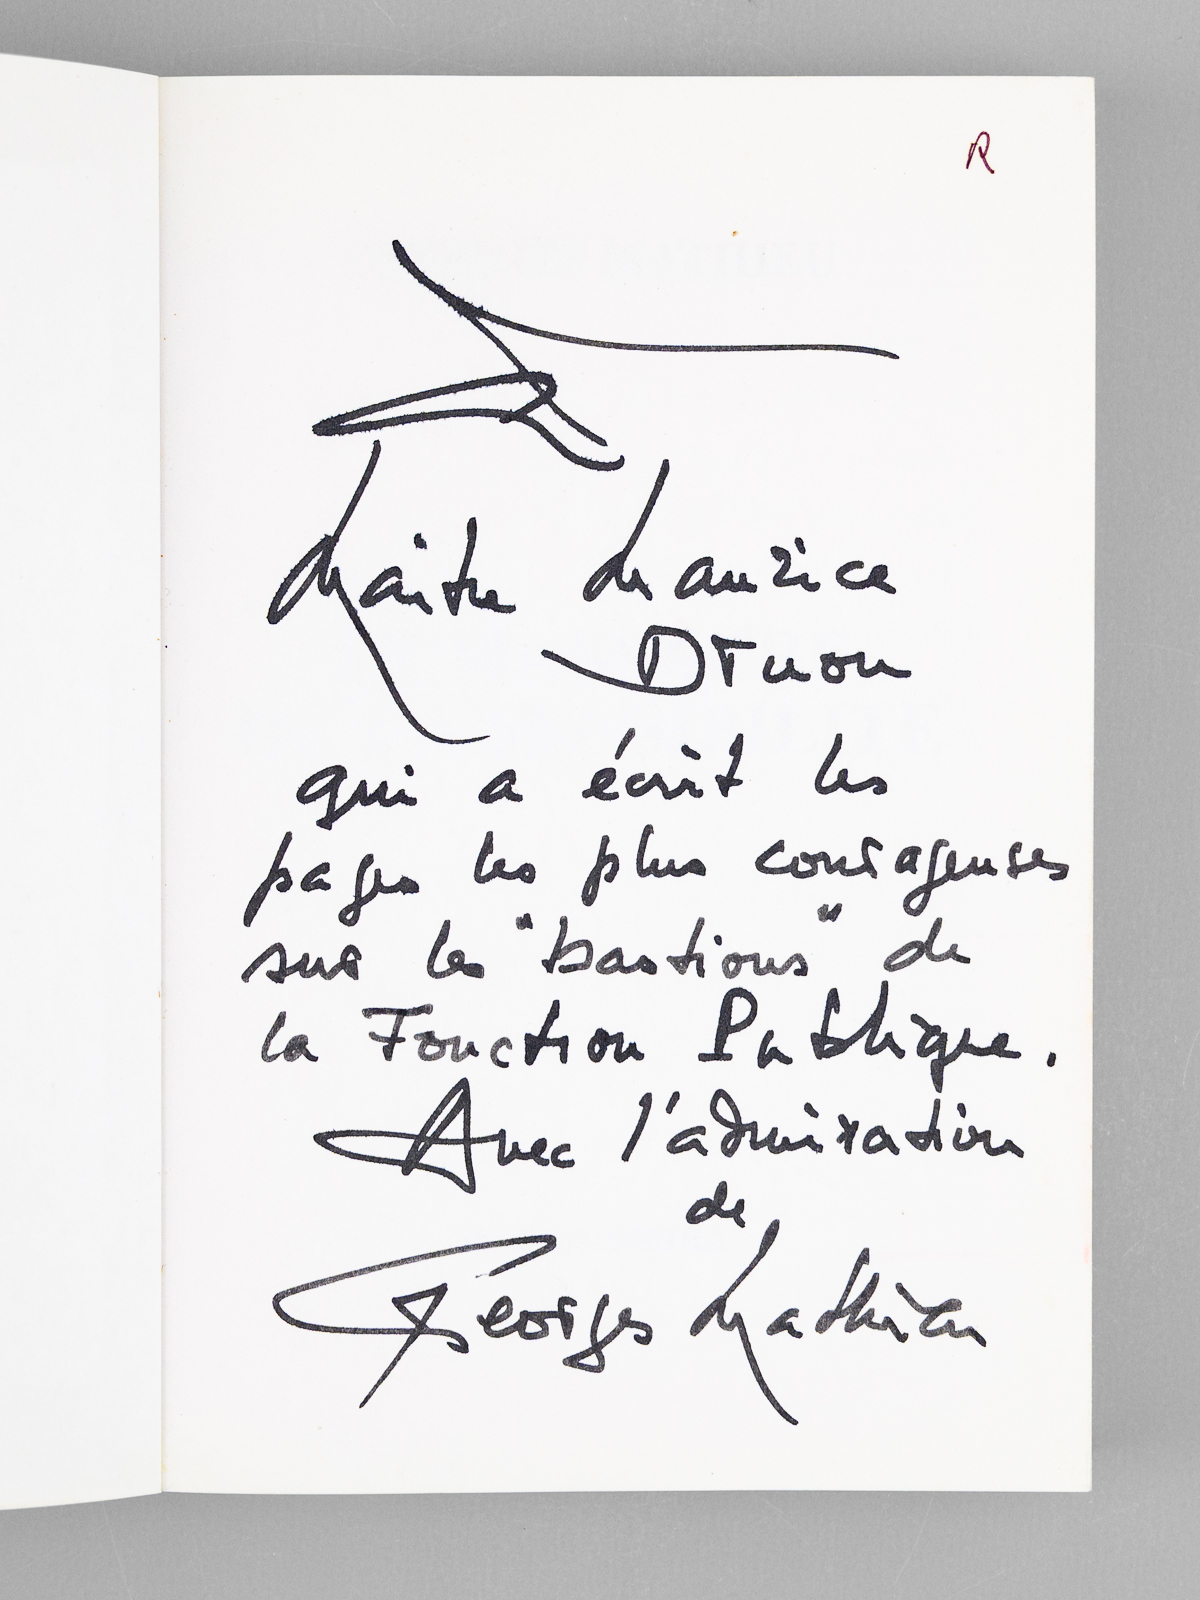 R
à
Maître Maurice
Druon
qui a écrit les
pages les plus courageuses
sur les "bastions" de
la Fonction Publique.
Avec l'admiration
de
Georges Mathieu